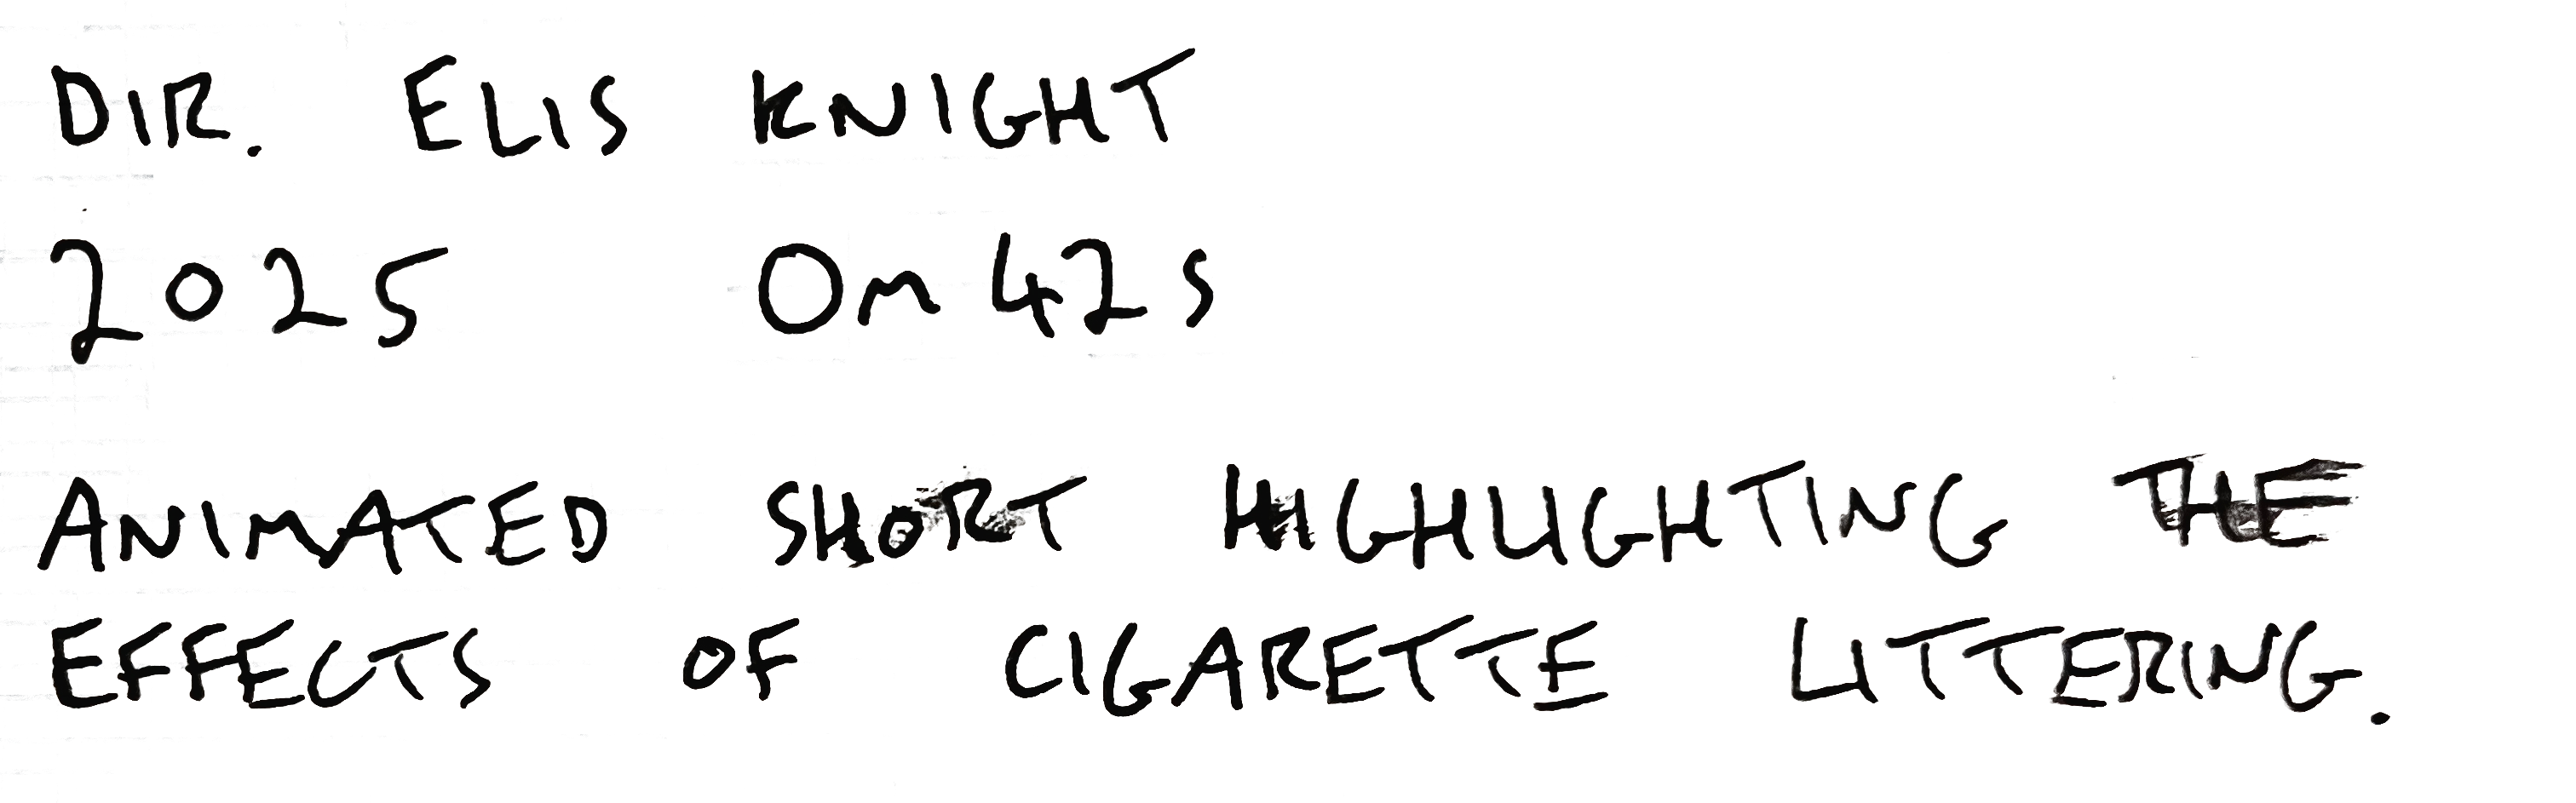 DIR. ELIS KNIGHT
2025 0m 42s
ANIMATED SHORT HIGHLIGHTING THE
EFFECTS OF CIGARETTE LITTERING.